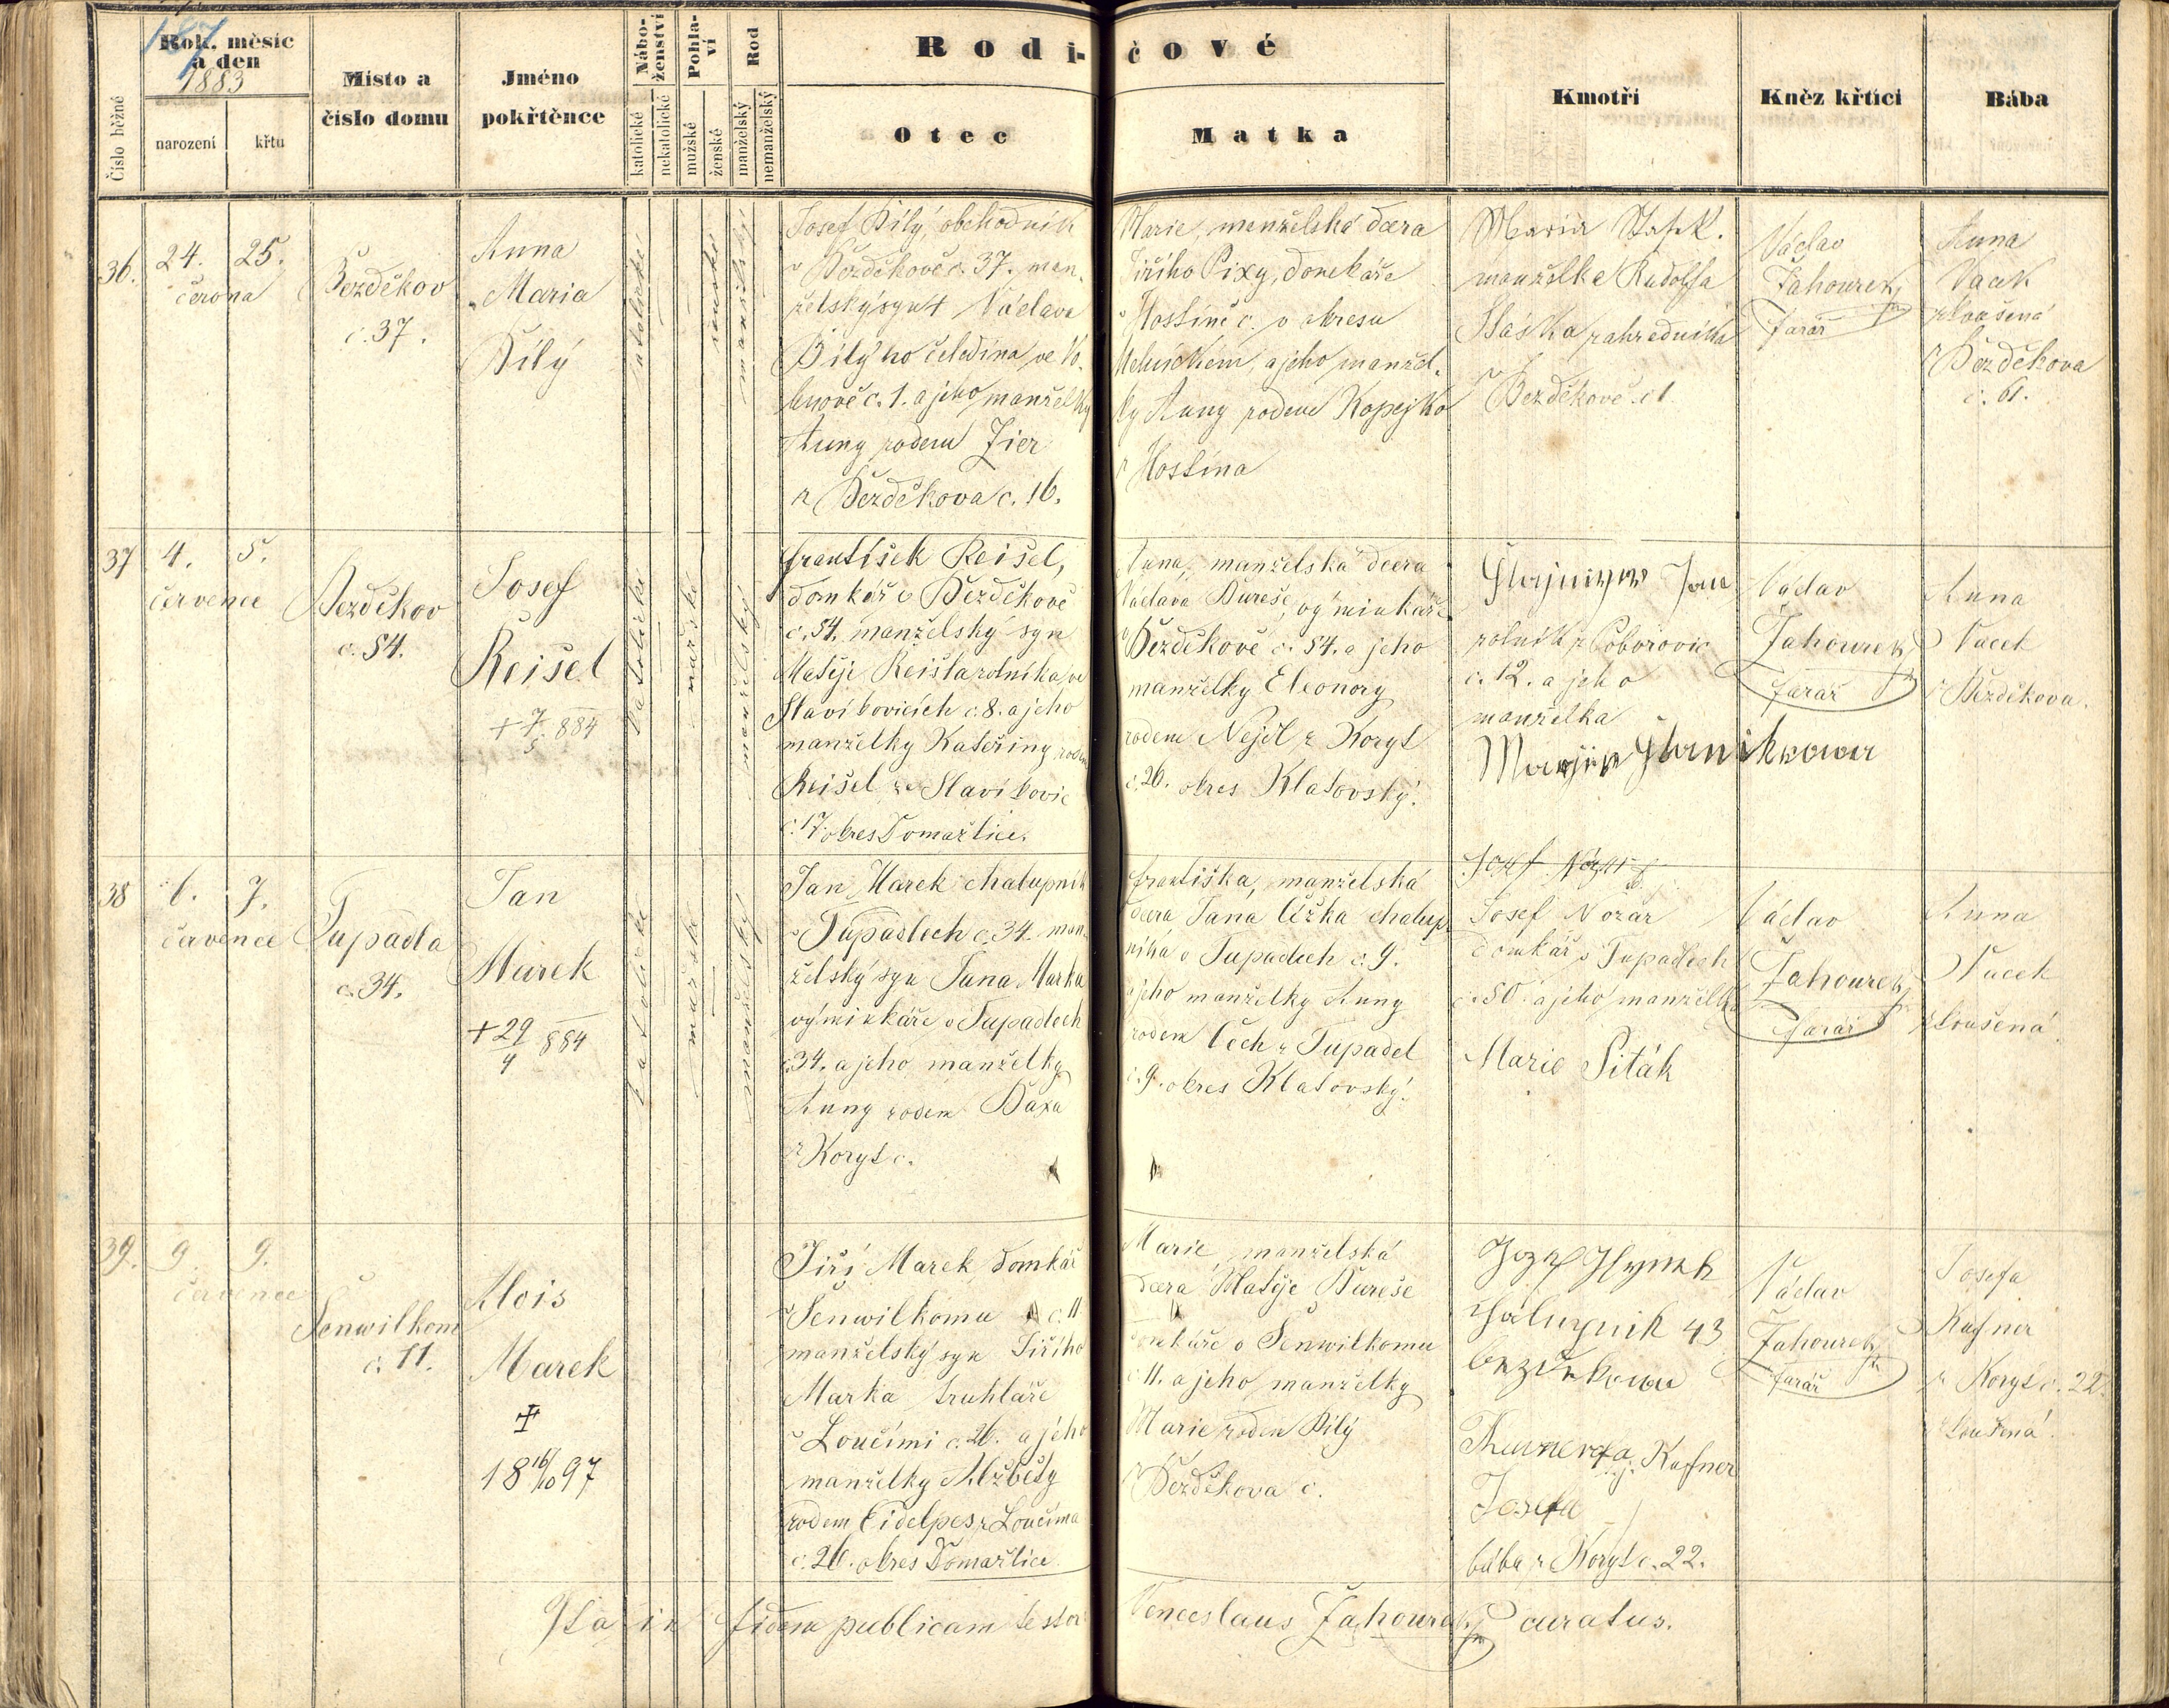 187
Rok, měsíc
a den
1883
Číslo běžné
narození
křtu
Místo a
číslo domu
Jméno
pokřtěnce
Nábo-
ženství
katolické
nekatolické
Pohla-
ví
mužské
ženské
Rod
manželský
nemanželský
Rodi-
čové
Otec
Matka
Kmotři
Kněz křtící
Bába
36.
24. 25.
června
Bezděkov
č. 37.
Anna
Maria
Bílý
katolické
ženské
manželský
Josef Bílý, obchodník
v Bezděkově č. 37. man-
želský syn Václava
Bílýho čeledína ve
č. 1. a jeho manželky
Anny rodem Zier
z Bezděkova č. 16.
Marie, manželská dcera
Jiřího Pixy, domkáře
v Hostíně č. v okresu
a jeho manžel-
ky Anny rodem Kopejko
z Hostína
Maria
manželka Rudolfa
zahradníka
v
Bezděkově č. 1
Václav
Zahourek
farář
Anna
Vacek
zkoušená
z Bezděkova
č. 61.
37
4. 5.
července
Bezděkov
č. 54.
Josef
Reišel
+ 7/5 884
katolické
mužské
manželský
František Reišel,
domkář v Bezděkově
č. 54. manželský syn
Matěje Reišla rolníka ve
Slavíkovicích č. 8. a jeho
manželky Kateřiny rodem
Reišel ze Slavíkovic
č. 17 okres Domažlice.
Anna, manželská dcera
Václava Bureše, výminkáře
v Bezděkově č. 54. a jeho
manželky Eleonory
rodem Nejdl z Koryt
č. 26. okres Klatovský.
Jan
rolník z Poborovic
č. 12. a jeho
manželka
Václav
Zahourek
farář
Anna
Vacek
z Bezděkova.
38
6. 7.
července
Tupadla
č. 34.
Jan
Marek
+ 29/4 884
katolické
mužské
manželský
Jan Marek chalupník
v Tupadlech č. 34. man-
želský syn Jana Marka
výminkáře v Tupadlech
č. 34. a jeho manželky
Anny rodem Baxa
z Koryt č.
Františka, manželská
dcera Jana Cížka chalup-
níka v Tupadlech č. 9.
a jeho manželky Anny
rodem Čech z Tupadel
č. 9. okres Klatovský.
Josef
Josef Nozar
domkář v Tupadlech
č. 50. a jeho manželka
Marie Piták
Václav
Zahourek
farář
Anna
Vacek
zkoušená
39.
9. 9.
července
Šenwilkom
č. 11.
Alois
Marek
18 16/10 97
Jiří Marek domkář
v Šenwilkomu č. 11
manželský syn Jiřího
Marka truhláře
v Loučimi č. 26. a jeho
manželky Alžběty
rodem Eidelpes z Loučima
č. 26. okres Domažlice
Marie, manželská
dcera Matěje Bureše
domkáře v Šenwilkomu
č. 11. a jeho manželky
Marie rodem Bílý
z Bezděkova č.
Jozef Hynek
chalupnik 43
Kafner
Josefa
bába z Koryt č. 22.
Václav
Zahourek
farář
Josefa
Kafner
z Koryt č. 22.
zkoušená.
Ita in fidem publicam testor
Venceslaus Zahourek curatus.